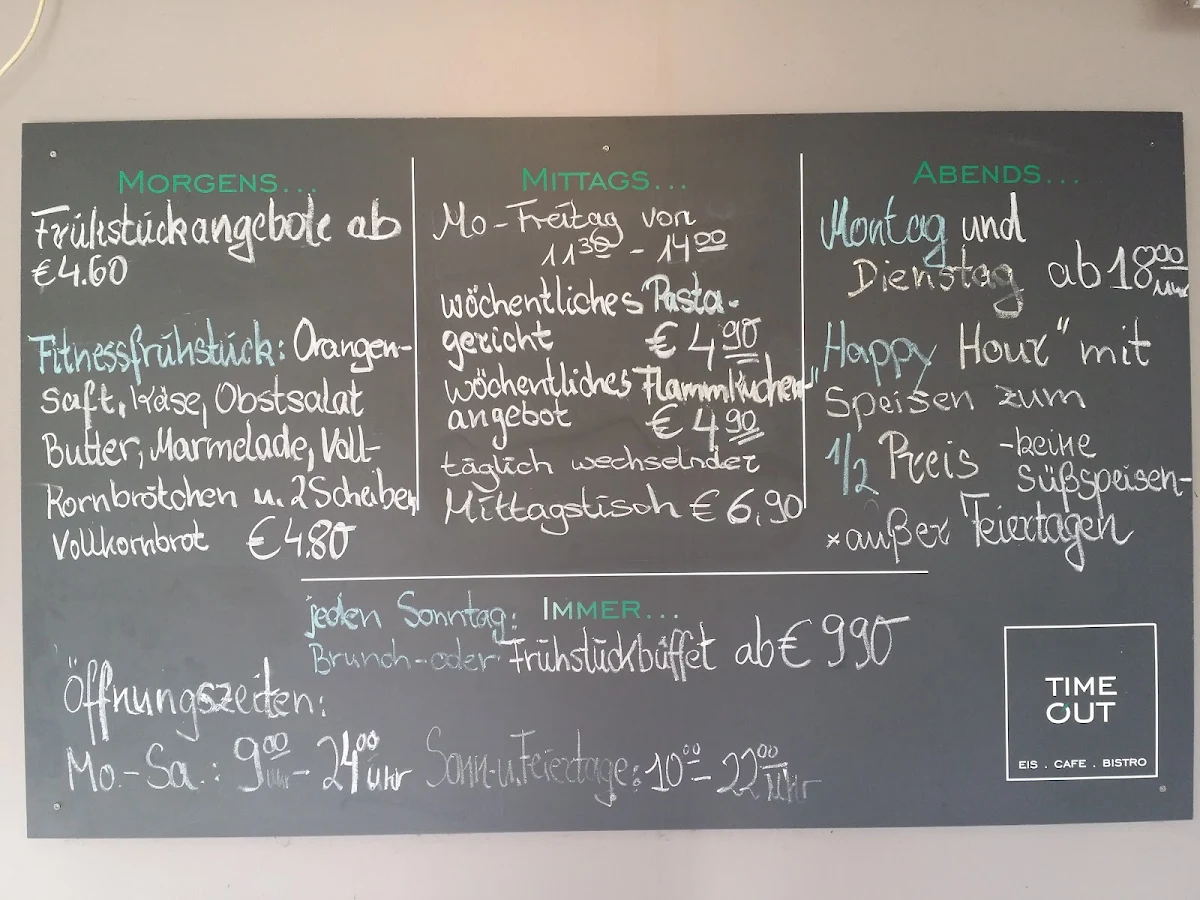 MORGENS...
Frühstückangebote ab
€ 4.60
Fitnessfrühstück: Orangen-
saft, Käse, Obstsalat
Butter, Marmelade, Voll-
kornbrötchen u. 2 Scheiben
Vollkornbrot € 4.80
MITTAGS...
Mo-Freitag von
11 30 - 14 00
wöchentliches Pasta-
gericht € 4 90
wöchentliches Flammkuchen"
angebot € 4 90
täglich wechselnder
Mittagstisch € 6,90
ABENDS...
Montag und
Dienstag ab 18 00 Uhr
Happy Hour" mit
Speisen zum
1/2 Preis -keine
Süßspeisen-
*außer Feiertagen
IMMER...
jeden Sonntag:
Brunch-oder Frühstückbüffet ab € 9 90
Öffnungszeiten:
Mo.-Sa.: 9 00 Uhr - 24 00 Uhr Sonn-u. Feiertage: 10 00 - 22 00 Uhr
TIME
OUT
EIS . CAFE . BISTRO